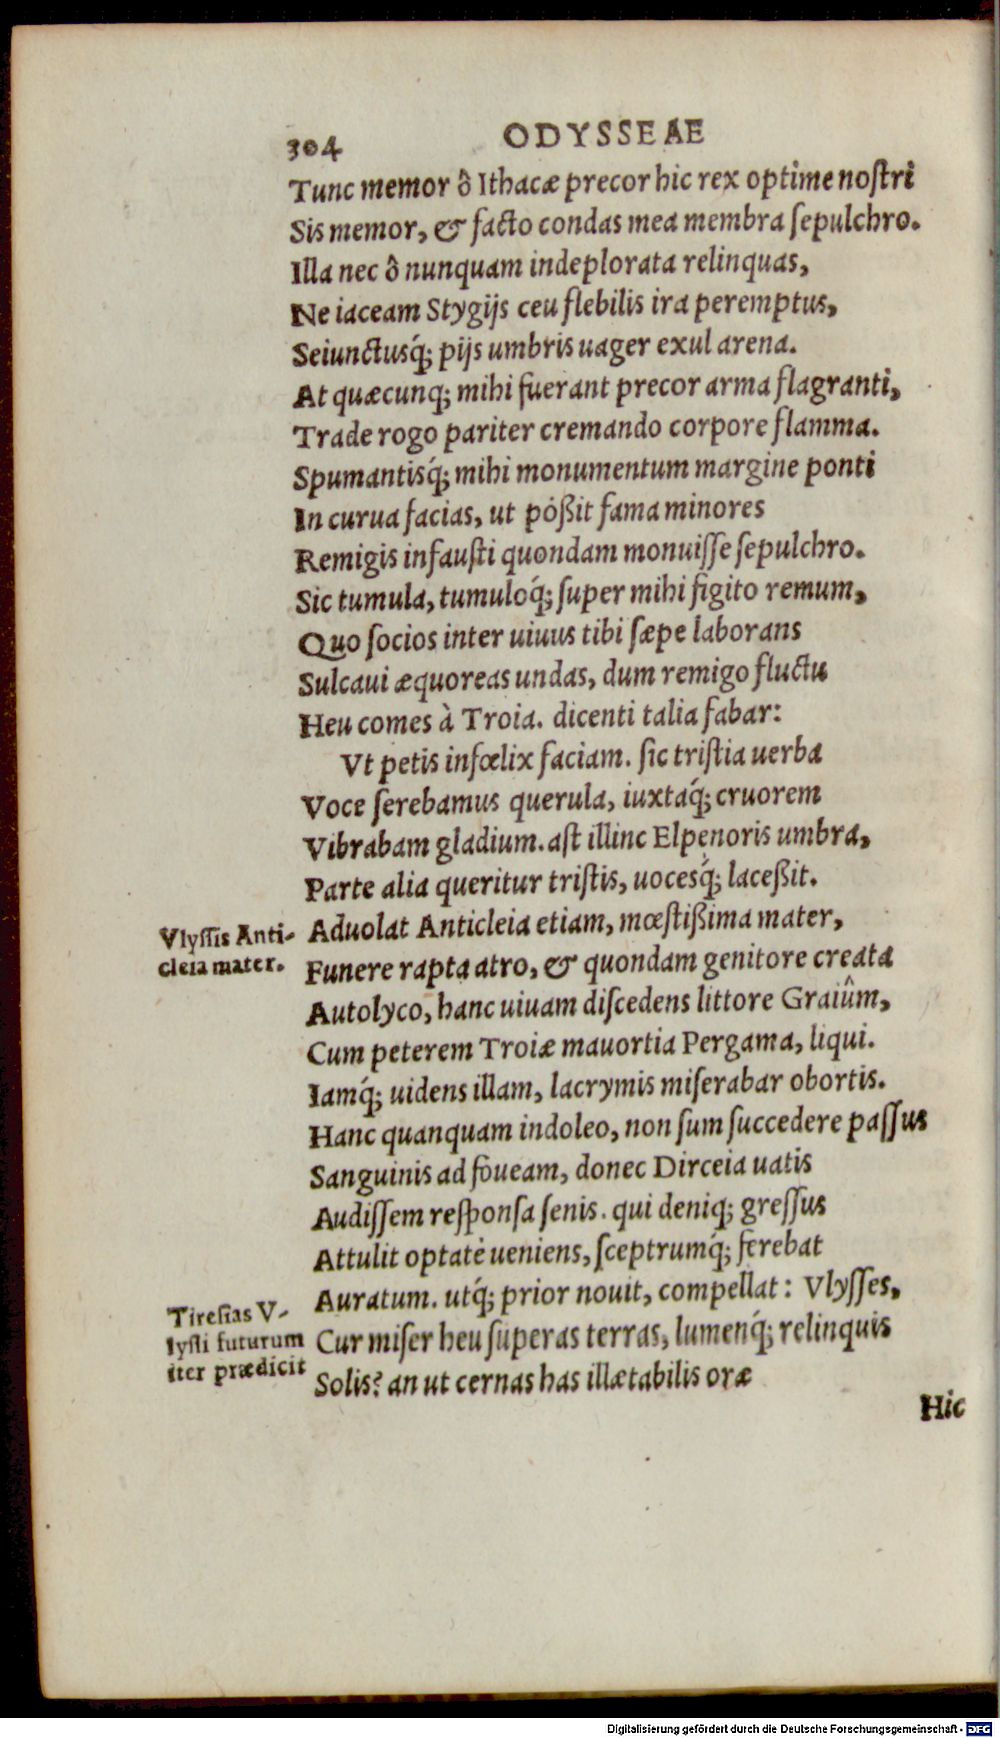 304 ODYSSEAE
Tunc memor ô Ithacæ precor hic rex optime noſtri
Sis memor, & facto condas mea membra ſepulchro.
Illa nec ô nunquam indeplorata relinquas,
Ne iaceam Stygijs ceu flebilis ira peremptus,
Seiunctusq́; pijs umbris uager exul arena.
At quæcunq; mihi fuerant precor arma flagranti,
Trade rogo pariter cremando corpore flamma.
Spumantisq́; mihi monumentum margine ponti
In curua facias, ut poßit fama minores
Remigis infauſti quondam monuiſſe ſepulchro.
Sic tumula, tumuloq́; ſuper mihi figito remum,
Quo ſocios inter uiuus tibi ſæpe laborans
Sulcaui æquoreas undas, dum remigo fluctu
Heu comes à Troia. dicenti talia fabar:
Vt petis infœlix faciam. ſic triſtia uerba
Voce ſerebamus querula, iuxtaq́; cruorem
Vibrabam gladium. aſt illinc Elpenoris umbra,
Parte alia queritur triſtis, uocesq́; laceßit.
Vlyſſis Anti-
cleia mater.
Aduolat Anticleia etiam, mœſtißima mater,
Funere rapta atro, & quondam genitore creata
Autolyco, hanc uiuam diſcedens littore Graiûm,
Cum peterem Troiæ mauortia Pergama, liqui.
Iamq́; uidens illam, lacrymis miſerabar obortis.
Hanc quanquam indoleo, non ſum ſuccedere paſſus
Sanguinis ad foueam, donec Dirceia uatis
Audiſſem reſponſa ſenis. qui deniq; greſſus
Attulit optatè ueniens, ſceptrumq́; ferebat
Tireſias V-
lyſſi futurum
iter prædicit
Auratum. utq́; prior nouit, compellat: Vlyſſes,
Cur miſer heu ſuperas terras, lumenq́; relinquis
Solis? an ut cernas has illætabilis oræ
Hic
Digitalisierung gefördert durch die Deutsche Forschungsgemeinschaft - DFG